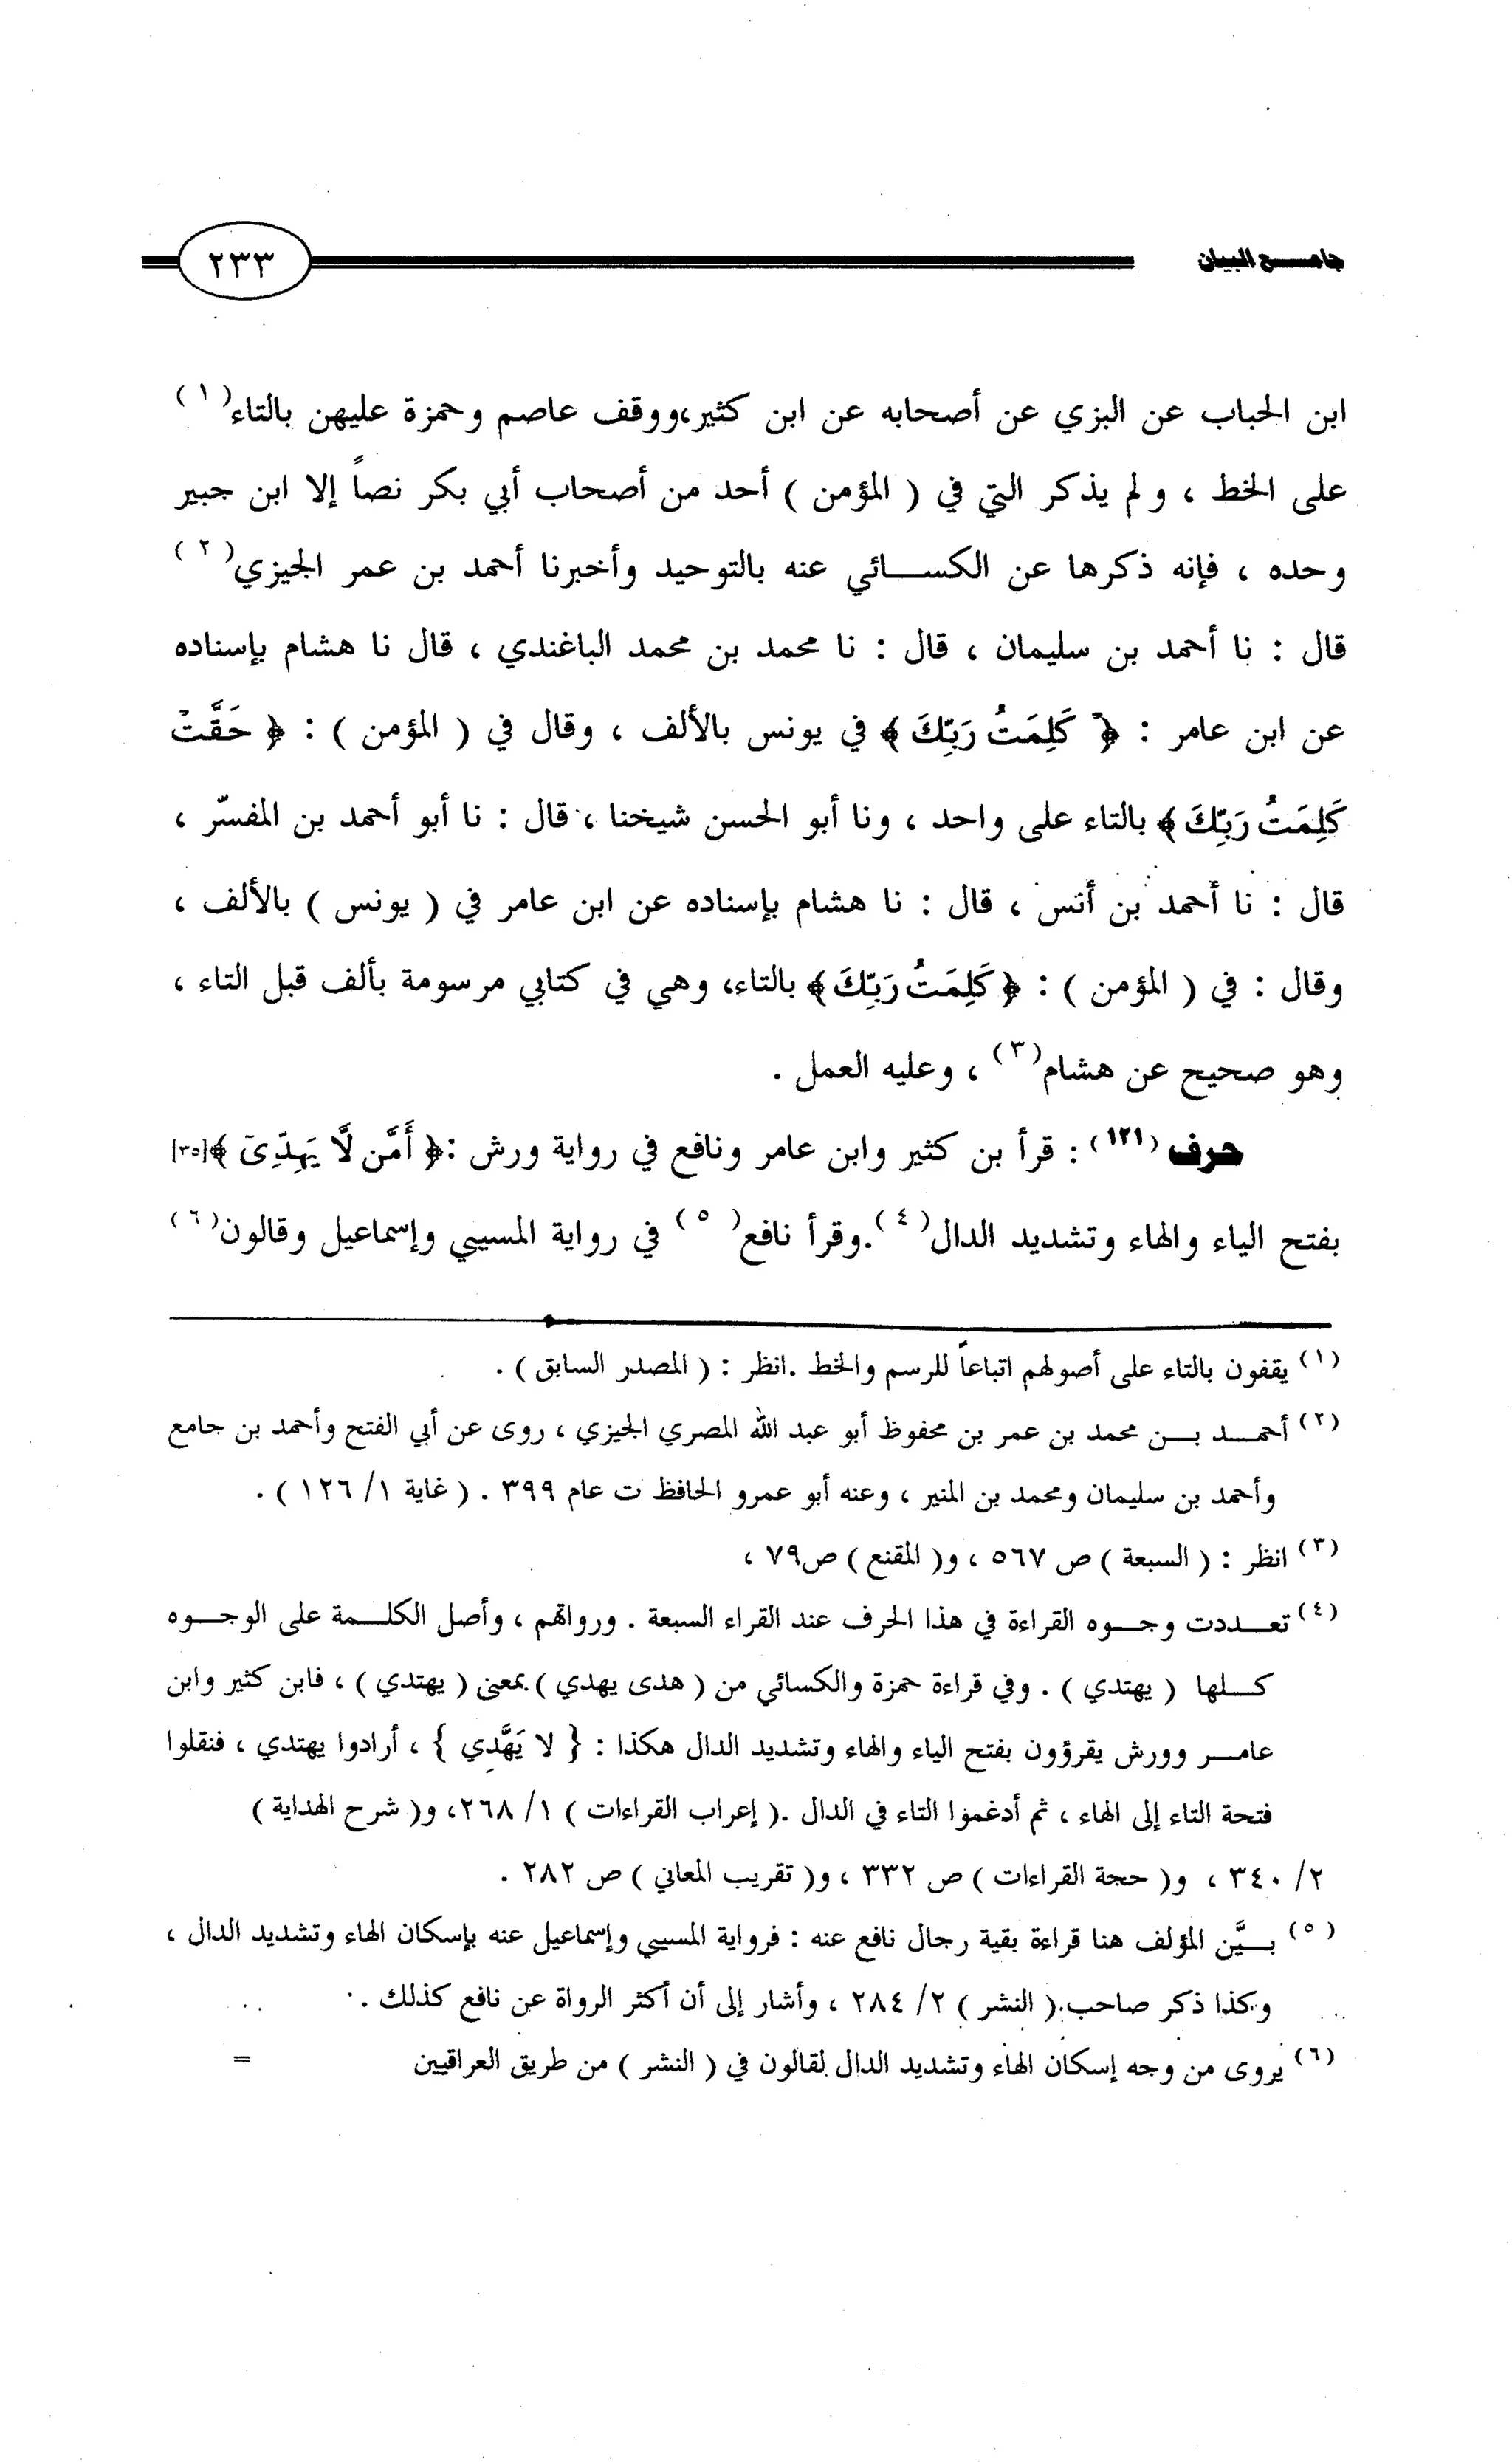 جامـــع البيان
٢٣٣
ابن الحباب عن البزي عن أصحابه عن ابن كثير،ووقف عاصم وحمزة عليهن بالتاء(١)
على الخط ، ولم يذكر التي في ( المؤمن ) أحد من أصحاب أبي بكر نصاً إلا ابن جبير
وحده ، فإنه ذكرها عن الكســائي عنه بالتوحيد وأخبرنا أحمد بن عمر الجيزي(٢)
قال : نا أحمد بن سليمان ، قال : نا محمد بن محمد الباغندي ، قال نا هشام بإسناده
عن ابن عامر : ﴿ كَلِمَتُ رَبِّكَ ﴾ في يونس بالألف ، وقال في ( المؤمن ) : ﴿ حَقَّتْ
كَلِمَتُ رَبِّكَ ﴾ بالتاء على واحد ، ونا أبو الحسن شيخنا ، قال : نا أبو أحمد بن المفسّر ،
قال : نا أحمد بن أنس ، قال : نا هشام بإسناده عن ابن عامر في ( يونس ) بالألف ،
وقال : في ( المؤمن ) : ﴿ كَلِمَتُ رَبِّكَ ﴾ بالتاء، وهي في كتابي مرسومة بألف قبل التاء ،
وهو صحيح عن هشام(٣) ، وعليه العمل .
حرف (١٢١) : قرأ بن كثير وابن عامر ونافع في رواية ورش :﴿ أَمَّن لَّا يَهَدِّىٓ ﴾[٣٥]
بفتح الياء والهاء وتشديد الدال(٤).وقرأ نافع(٥) في رواية المسيبي وإسماعيل وقالون(٦)
(١) يقفون بالتاء على أصولهم اتباعاً للرسم والخط .انظر : ( المصدر السابق ) .
(٢) أحمـــد بـــن محمد بن عمر بن محفوظ أبو عبد الله المصري الجيزي ، روى عن أبي الفتح وأحمد بن جامع
وأحمد بن سليمان ومحمد بن المنير ، وعنه أبو عمرو الحافظ ت عام ٣٩٩ . ( غاية ١/ ١٢٦ ) .
(٣) انظر : ( السبعة ) ص ٥٦٧ ، و( المقنع ) ص٧٩ ،
(٤) تعـــددت وجـــوه القراءة في هذا الحرف عند القراء السبعة . ورواتهم ، وأصل الكلـــمة على الوجـــوه
كـــلها ( يهتدي ) . وفي قراءة حمزة والكسائي من ( هدى يهدي ) بمعنى ( يهتدي ) ، فابن كثير وابن
عامـــر وورش يقرؤون بفتح الياء والهاء وتشديد الدال هكذا : { لا يَهَّدِي } ، أرادوا يهتدي ، فنقلوا
فتحة التاء إلى الهاء ، ثم أدغموا التاء في الدال .( إعراب القراءات ) ١/ ٢٦٨، و( شرح الهداية )
٢/ ٣٤٠ ، و( حجة القراءات ) ص ٣٣٢ ، و( تقريب المعاني ) ص ٢٨٢ .
(٥) بـــيَّن المؤلف هنا قراءة بقية رجال نافع عنه : فرواية المسيبي وإسماعيل عنه بإسكان الهاء وتشديد الدال ،
وكذا ذكر صاحب ( النشر ) ٢/ ٢٨٤ ، وأشار إلى أن أكثر الرواة عن نافع كذلك .
(٦) يروى من وجه إسكان الهاء وتشديد الدال لقالون في ( النشر ) من طريق العراقيين =